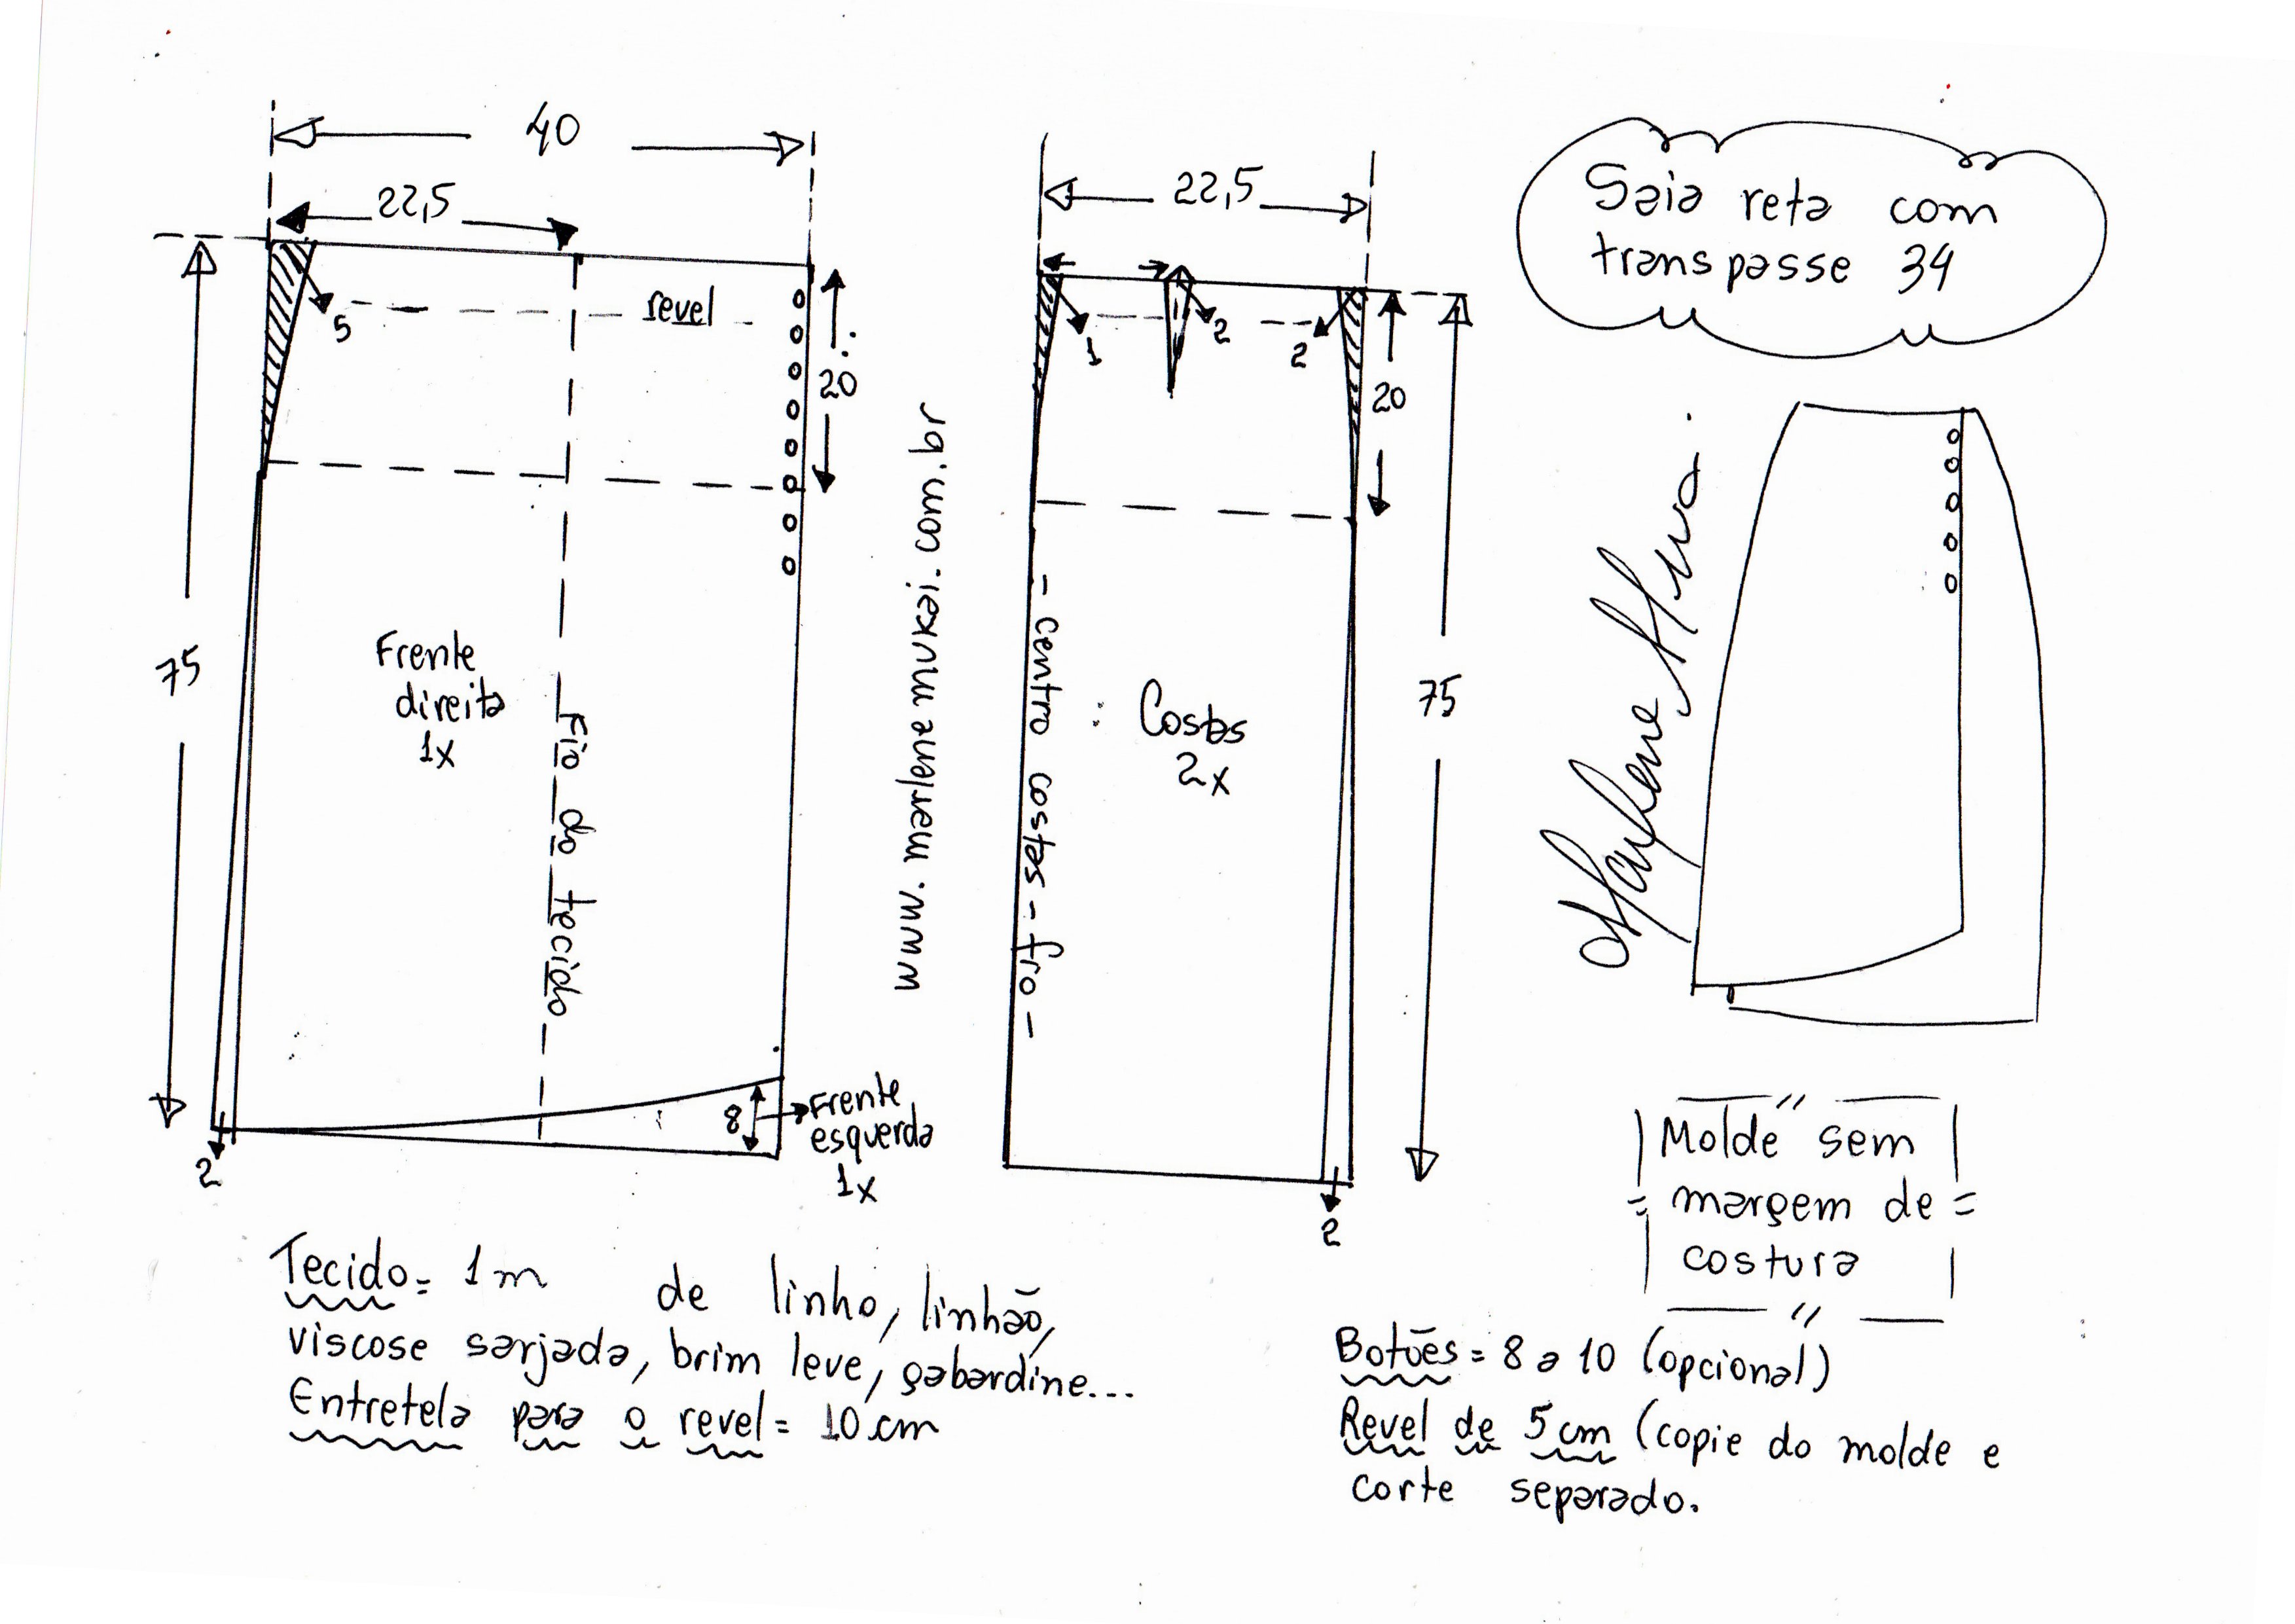 40
22,5
5
revel
20
75
Frente
direita
1x
Fio do tecido
8
Frente
esquerda
1x
2
www.marlene mukai.com.br
22,5
1
2
2
20
75
- centro costas - fio -
Costas
2x
2
Saia reta com
transpasse 34
Marlene
Molde sem
margem de
costura
Tecido= 1m de linho, linhão,
viscose sarjada, brim leve, gabardine...
Entretela para o revel= 10 cm
Botões= 8 a 10 (opcional)
Revel de 5cm (copie do molde e
corte separado.